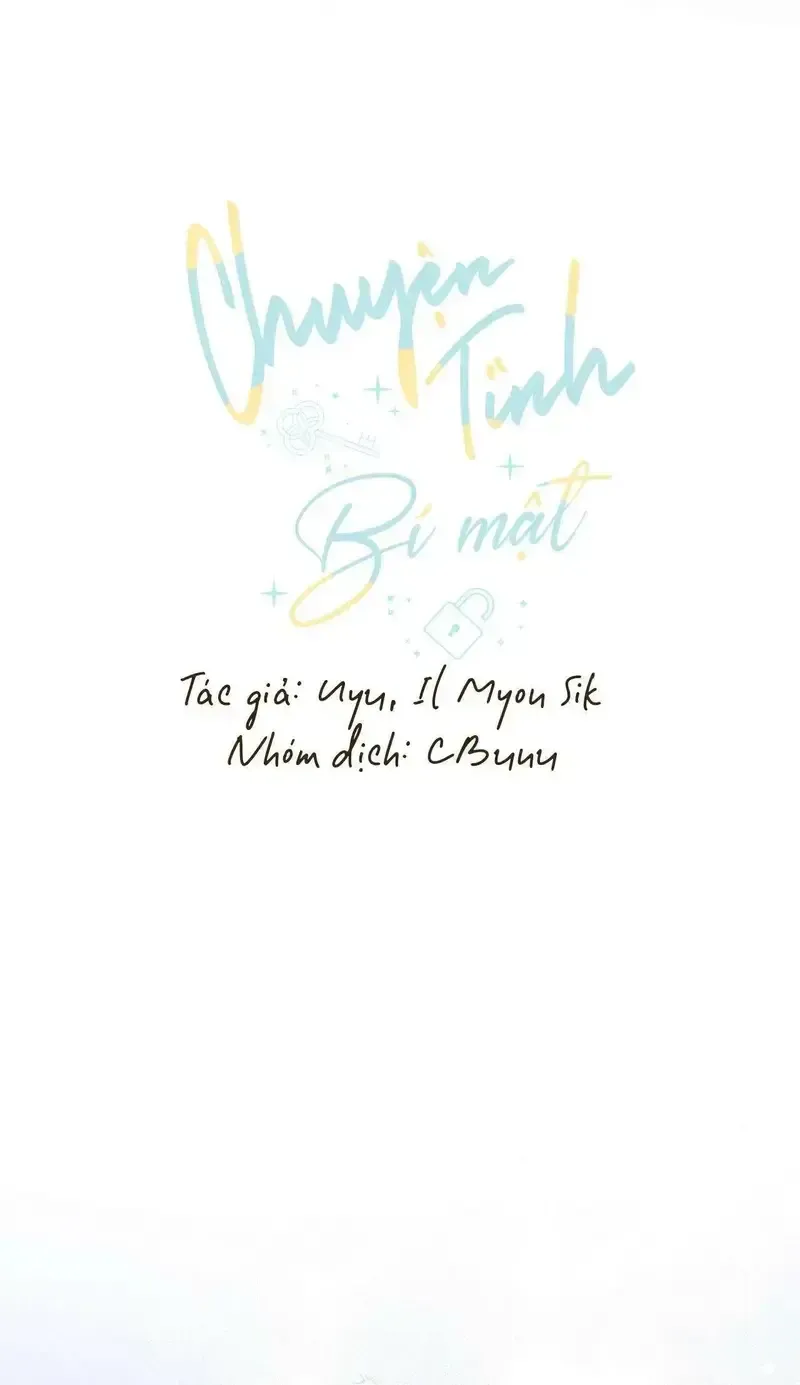 Chuyện
Tình
Bí mật
Tác giả: Uyu, Il Myou Sik
Nhóm dịch: CBunu